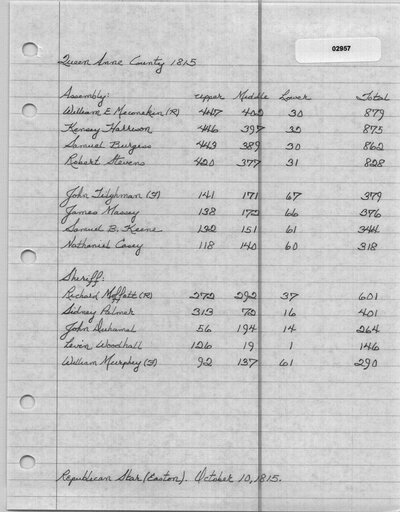 02957
Queen Anne County 1815
Assembly: Upper Middle Lower Total
William E Meconekin (R) 447 402 30 879
Kensey Harrison 446 397 32 875
Samuel Burgess 443 389 30 862
Robert Stevens 420 377 31 828
John Tilghman (F) 141 171 67 379
James Massey 138 172 66 376
Samuel B. Keene 132 151 61 344
Nathaniel Casey 118 140 60 318
Sheriff:
Richard Moffatt (R) 272 292 37 601
Sidney Palmer 313 72 16 401
John Duhamel 56 194 14 264
Levin Woodhall 126 19 1 146
William Murphey (F) 92 137 61 290
Republican Star (Easton). October 10, 1815.